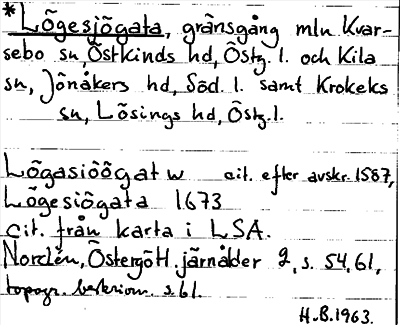 *Lögesjögata, gränsgång mln Kvar-
sebo sn, Östkinds hd, Östg. l. och Kila
sn, Jönåkers hd, Söd. l. samt Krokeks
sn, Lösings hd, Östg. l.
Lögasiöögat w cit. efter avskr. 1587,
Lögesiögata 1673
cit. från karta i LSA.
Nordén, Östergötl. järnålder 2, s. 54, 61,
topogr. s. 61.
H.B. 1963.